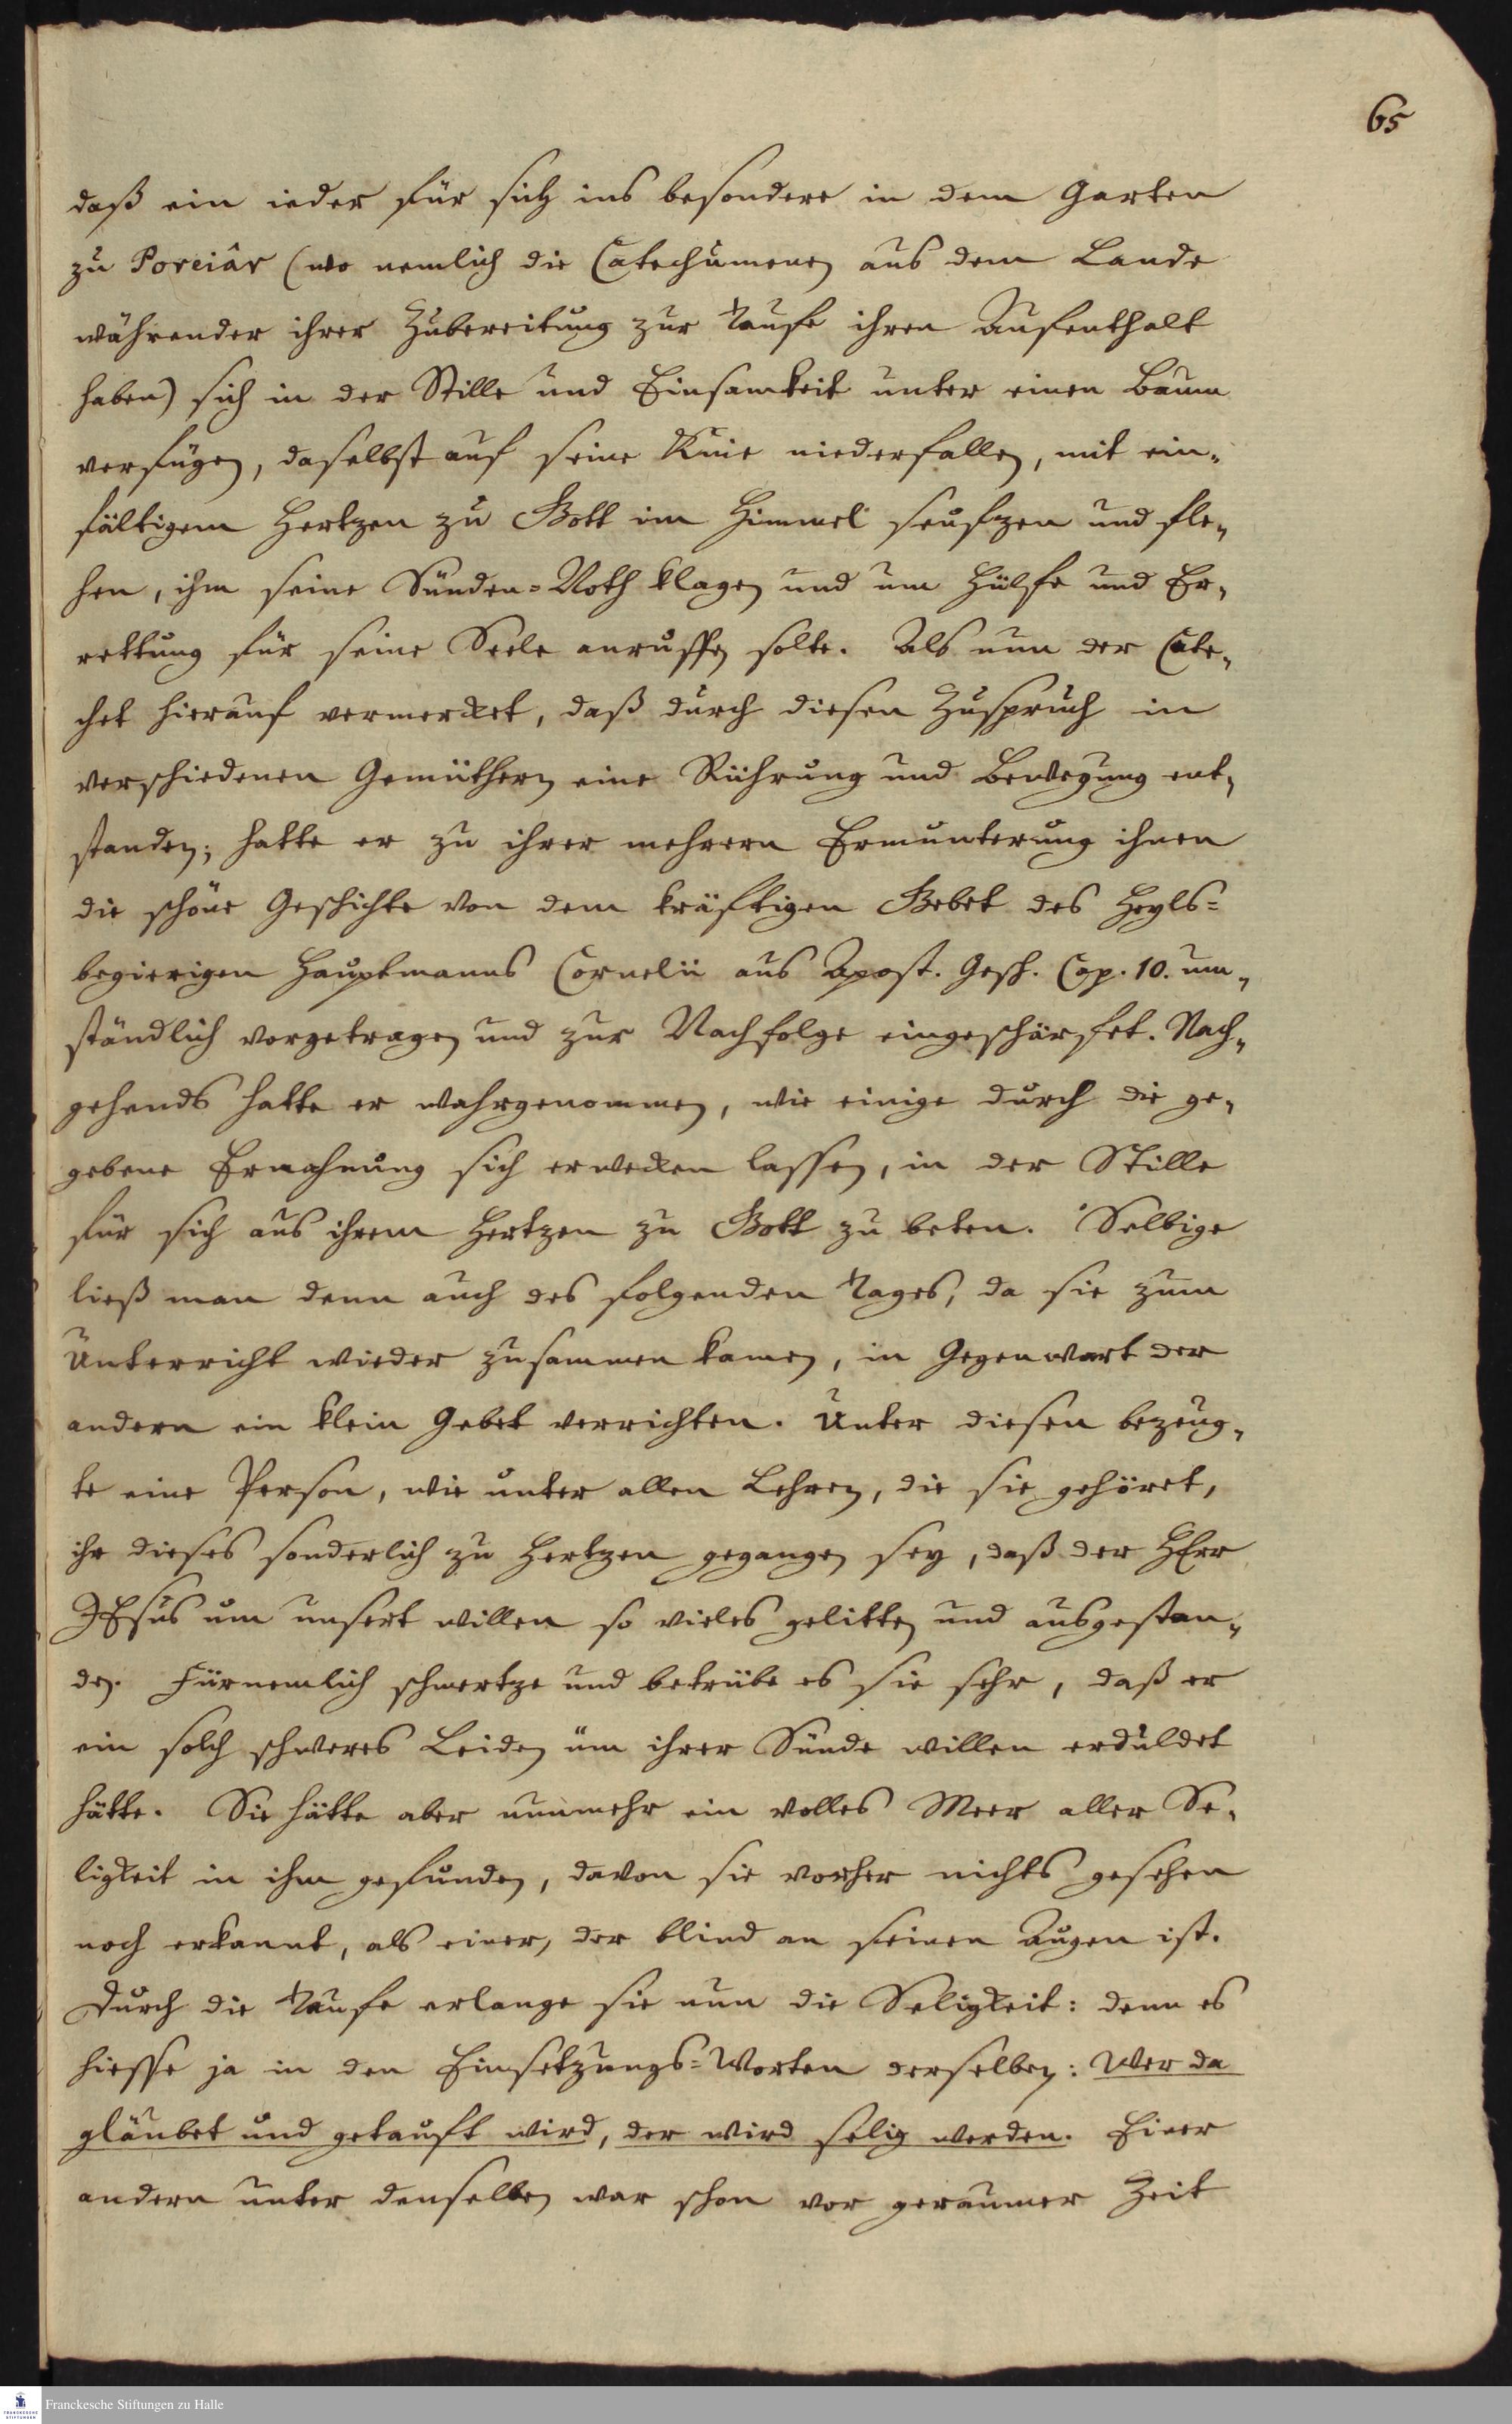 65
daß ein ieder für sich ins besondere in dem Garten
zu Poreiâr (wo nemlich die Catechumenen aus dem Lande
währender ihrer Zubereitung zur Taufe ihren Aufenthalt
haben) sich in der Stille und Einsamkeit unter einen Baum
verfügen, daselbst auf seine Knie niederfallen, mit ein-
fältigem Hertzen zu Gott im Himmel seufzen und fle-
hen, ihm seine Sünden-Noth klagen und um Hülfe und Er-
rettung für seine Seele anruffen solte. Als nun der Cate-
chet hierauf vermercket, daß durch diesen Zuspruch in
verschiedenen Gemüthern eine Rührung und Bewegung ent-
standen; hatte er zu ihrer mehrern Ermunterung ihnen
die schöne Geschichte von dem kräftigen Gebet des Heyls-
begierigen Hauptmanns Cornelii aus Apost. Gesch. Cap. 10. um-
ständlich vorgetragen und zur Nachfolge eingeschärfet. Nach-
gehends hatte er wahrgenommen, wie einige durch die ge-
gebene Ermahnung sich erwecken lassen, in der Stille
für sich aus ihrem Hertzen zu Gott zu beten. Selbige
ließ man denn auch des folgenden Tages, da sie zum
Unterricht wieder zusammen kamen, in Gegenwart der
andern ein klein Gebet verrichten. Unter diesen bezeug-
te eine Person, wie unter allen Lehren, die sie gehöret,
ihr dieses sonderlich zu Hertzen gegangen sey, daß der HErr
JEsus um unsert willen so vieles gelitten und ausgestan-
den. Fürnemlich schmertze und betrübe es sie sehr, daß er
ein solch schweres Leiden üm ihrer Sünde willen erduldet
hätte. Sie hätte aber nunmehr ein volles Meer aller Se-
ligkeit in ihm gefunden, davon sie vorher nichts gesehen
noch erkannt, als einer, der blind an seinen Augen ist.
Durch die Taufe erlange sie nun die Seligkeit: denn es
hiesse ja in den Einsetzungs-Worten derselben: Wer da
gläubet und getauft wird, der wird selig werden. Einer
andern unter denselben war schon vor geraumer Zeit
Franckesche Stiftungen zu Halle
FRANCKESCHE
STIFTUNGEN